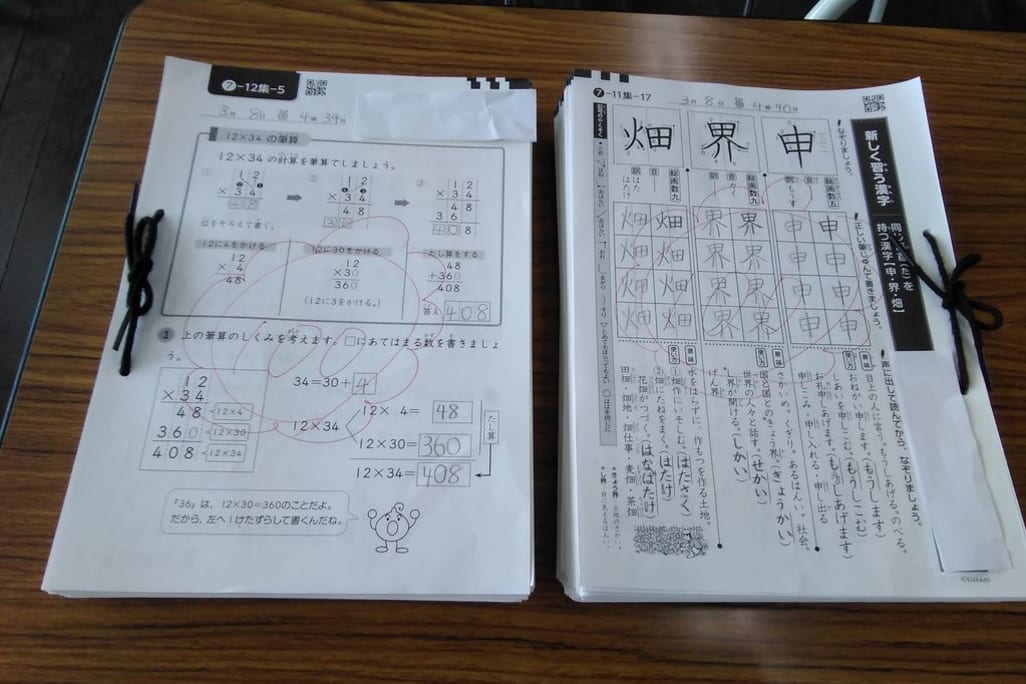 ⑦-12集-5
3月 8日 4時 34分
12×34 の筆算
12×34 の計算を筆算でしましょう。
① ② ③
12 12 12
×34 ×34 ×34
48 48 48
36 36
408
位をそろえて書く。
12に4をかける
12
× 4
48
12に30をかける
12
×30
360
(12に3をかける。)
たし算をする
48
+360
408
答え 408
1 上の筆算のしくみを考えます。□にあてはまる数を書きましょ
う。
12
×34
48 12×4
360 12×30
408 12×34
34=30+4
12×34
12× 4= 48
12×30= 360
12×34= 408
たし算
「36」は、12×30=360のことだよ。
だから、左へ1けたずらして書くんだね。
⑦-11集-17
3月 8日 4時 40分
新しく習う漢字
持つ漢字【申・界・畑】
なぞりましょう。
申
界
畑
総画数五
訓 もうす
総画数九
音 カイ
訓
音
訓 はた はたけ
正しい筆じゅんで書きましょう。
申 申
申 申
申 申
申 申
界 界
界 界
界 界
界 界
畑 畑
畑 畑
畑 畑
畑 畑
声に出して読んでから、なぞりましょう。
意味
目上の人に言う。もうしあげる。のべる。
使い方
おねがい申します。(もうします)
しあいを申しこむ。(もうしこむ)
お礼申しあげます。(もうしあげます)
申しこみ・申し入れる・申し出る
意味
さかいめ。くぎり。あるはんい。社会。
使い方
国と国とのきょう界(きょうかい)
世界の人々と話す。(せかい)
し界が開ける。(しかい)
げん界
意味
水をはらずに、作もつを作る土地。
使い方
①畑作にいそしむ。(はたさく)
②畑にたねをまく。(はたけ)
花畑がつづく。(はなばたけ)
田畑・畑地・畑仕事・麦畑・茶畑
©Gakken